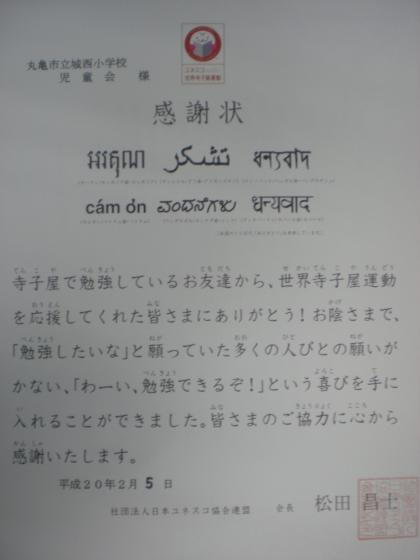 丸亀市立城西小学校
児童会 様
ユネスコ
世界寺子屋運動
感謝状
អរគុណ تشكر ধন্যবাদ
cám ơn ವಂದನೆಗಳು धन्यवाद
寺子屋で勉強しているお友達から、世界寺子屋運動
を応援してくれた皆さまにありがとう!お陰さまで、
「勉強したいな」と願っていた多くの人びとの願いが
かない、「わーい、勉強できるぞ!」という喜びを手に
入れることができました。皆さまのご協力に心から
感謝いたします。
平成20年2月 5 日
社団法人日本ユネスコ協会連盟 会長 松田 昌士